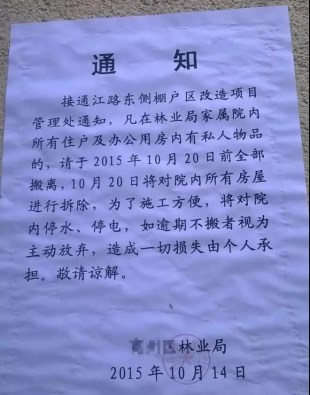 通 知
接通江路东侧棚户区改造项目
管理处通知，凡在林业局家属院内
所有住户及办公用房内有私人物品
的，请于 2015 年 10 月 20 日前全部
搬离，10 月 20 日将对院内所有房屋
进行拆除，为了施工方便，将对院
内停水、停电，如逾期不搬者视为
主动放弃，造成一切损失由个人承
担。敬请谅解。
区林业局
2015 年 10 月 14 日